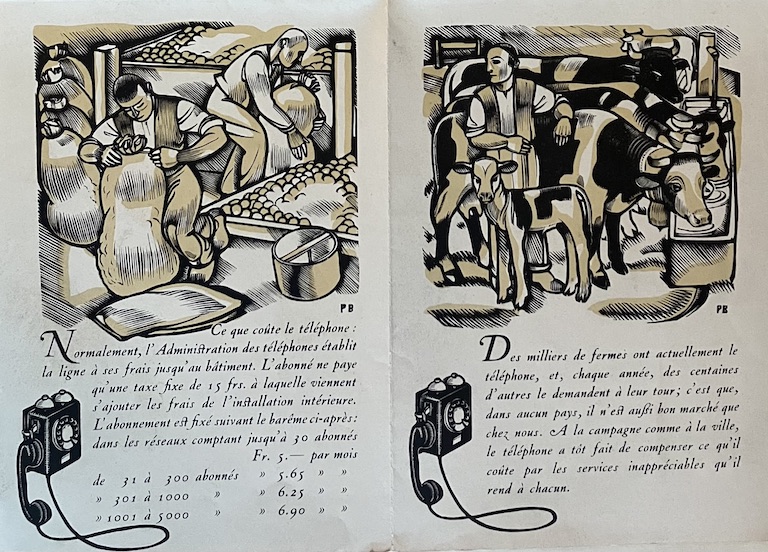 PB
Ce que coûte le téléphone :
Normalement, l'Administration des téléphones établit
la ligne à ses frais jusqu'au bâtiment. L'abonné ne paye
qu'une taxe fixe de 15 frs. à laquelle viennent
s'ajouter les frais de l'installation intérieure.
L'abonnement est fixé suivant le barême ci-après :
dans les réseaux comptant jusqu'à 30 abonnés
Fr. 5.— par mois
de 31 à 300 abonnés » 5.65 » »
» 301 à 1000 » » 6.25 » »
» 1001 à 5000 » » 6.90 » »
PB
Des milliers de fermes ont actuellement le
téléphone, et, chaque année, des centaines
d'autres le demandent à leur tour ; c'est que,
dans aucun pays, il n'est aussi bon marché que
chez nous. A la campagne comme à la ville,
le téléphone a tôt fait de compenser ce qu'il
coûte par les services inappréciables qu'il
rend à chacun.